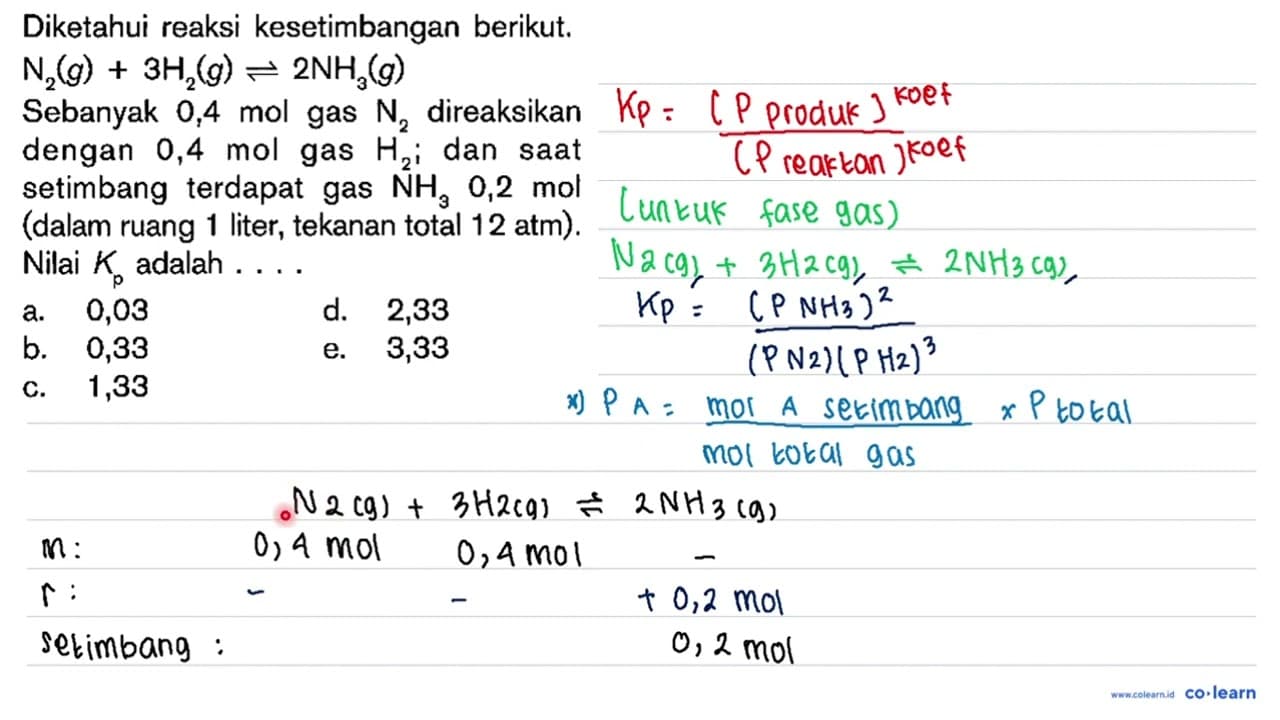 Diketahui reaksi kesetimbangan berikut.
N₂(g) + 3H₂(g) ⇌ 2NH₃(g)
Sebanyak 0,4 mol gas N₂ direaksikan
dengan 0,4 mol gas H₂; dan saat
setimbang terdapat gas NH₃ 0,2 mol
(dalam ruang 1 liter, tekanan total 12 atm).
Nilai Kₚ adalah . . . .
a. 0,03 d. 2,33
b. 0,33 e. 3,33
c. 1,33
Kp = (P produk)^koef
(P reaktan)^koef
(untuk fase gas)
N2(g) + 3H2(g) ⇌ 2NH3(g)
Kp = (P NH3)²
(P N2)(P H2)³
*) P A = mol A setimbang x P total
mol total gas
N2(g) + 3H2(g) ⇌ 2NH3(g)
m: 0,4 mol 0,4 mol -
r: - - + 0,2 mol
setimbang : 0,2 mol
www.colearn.id co·learn